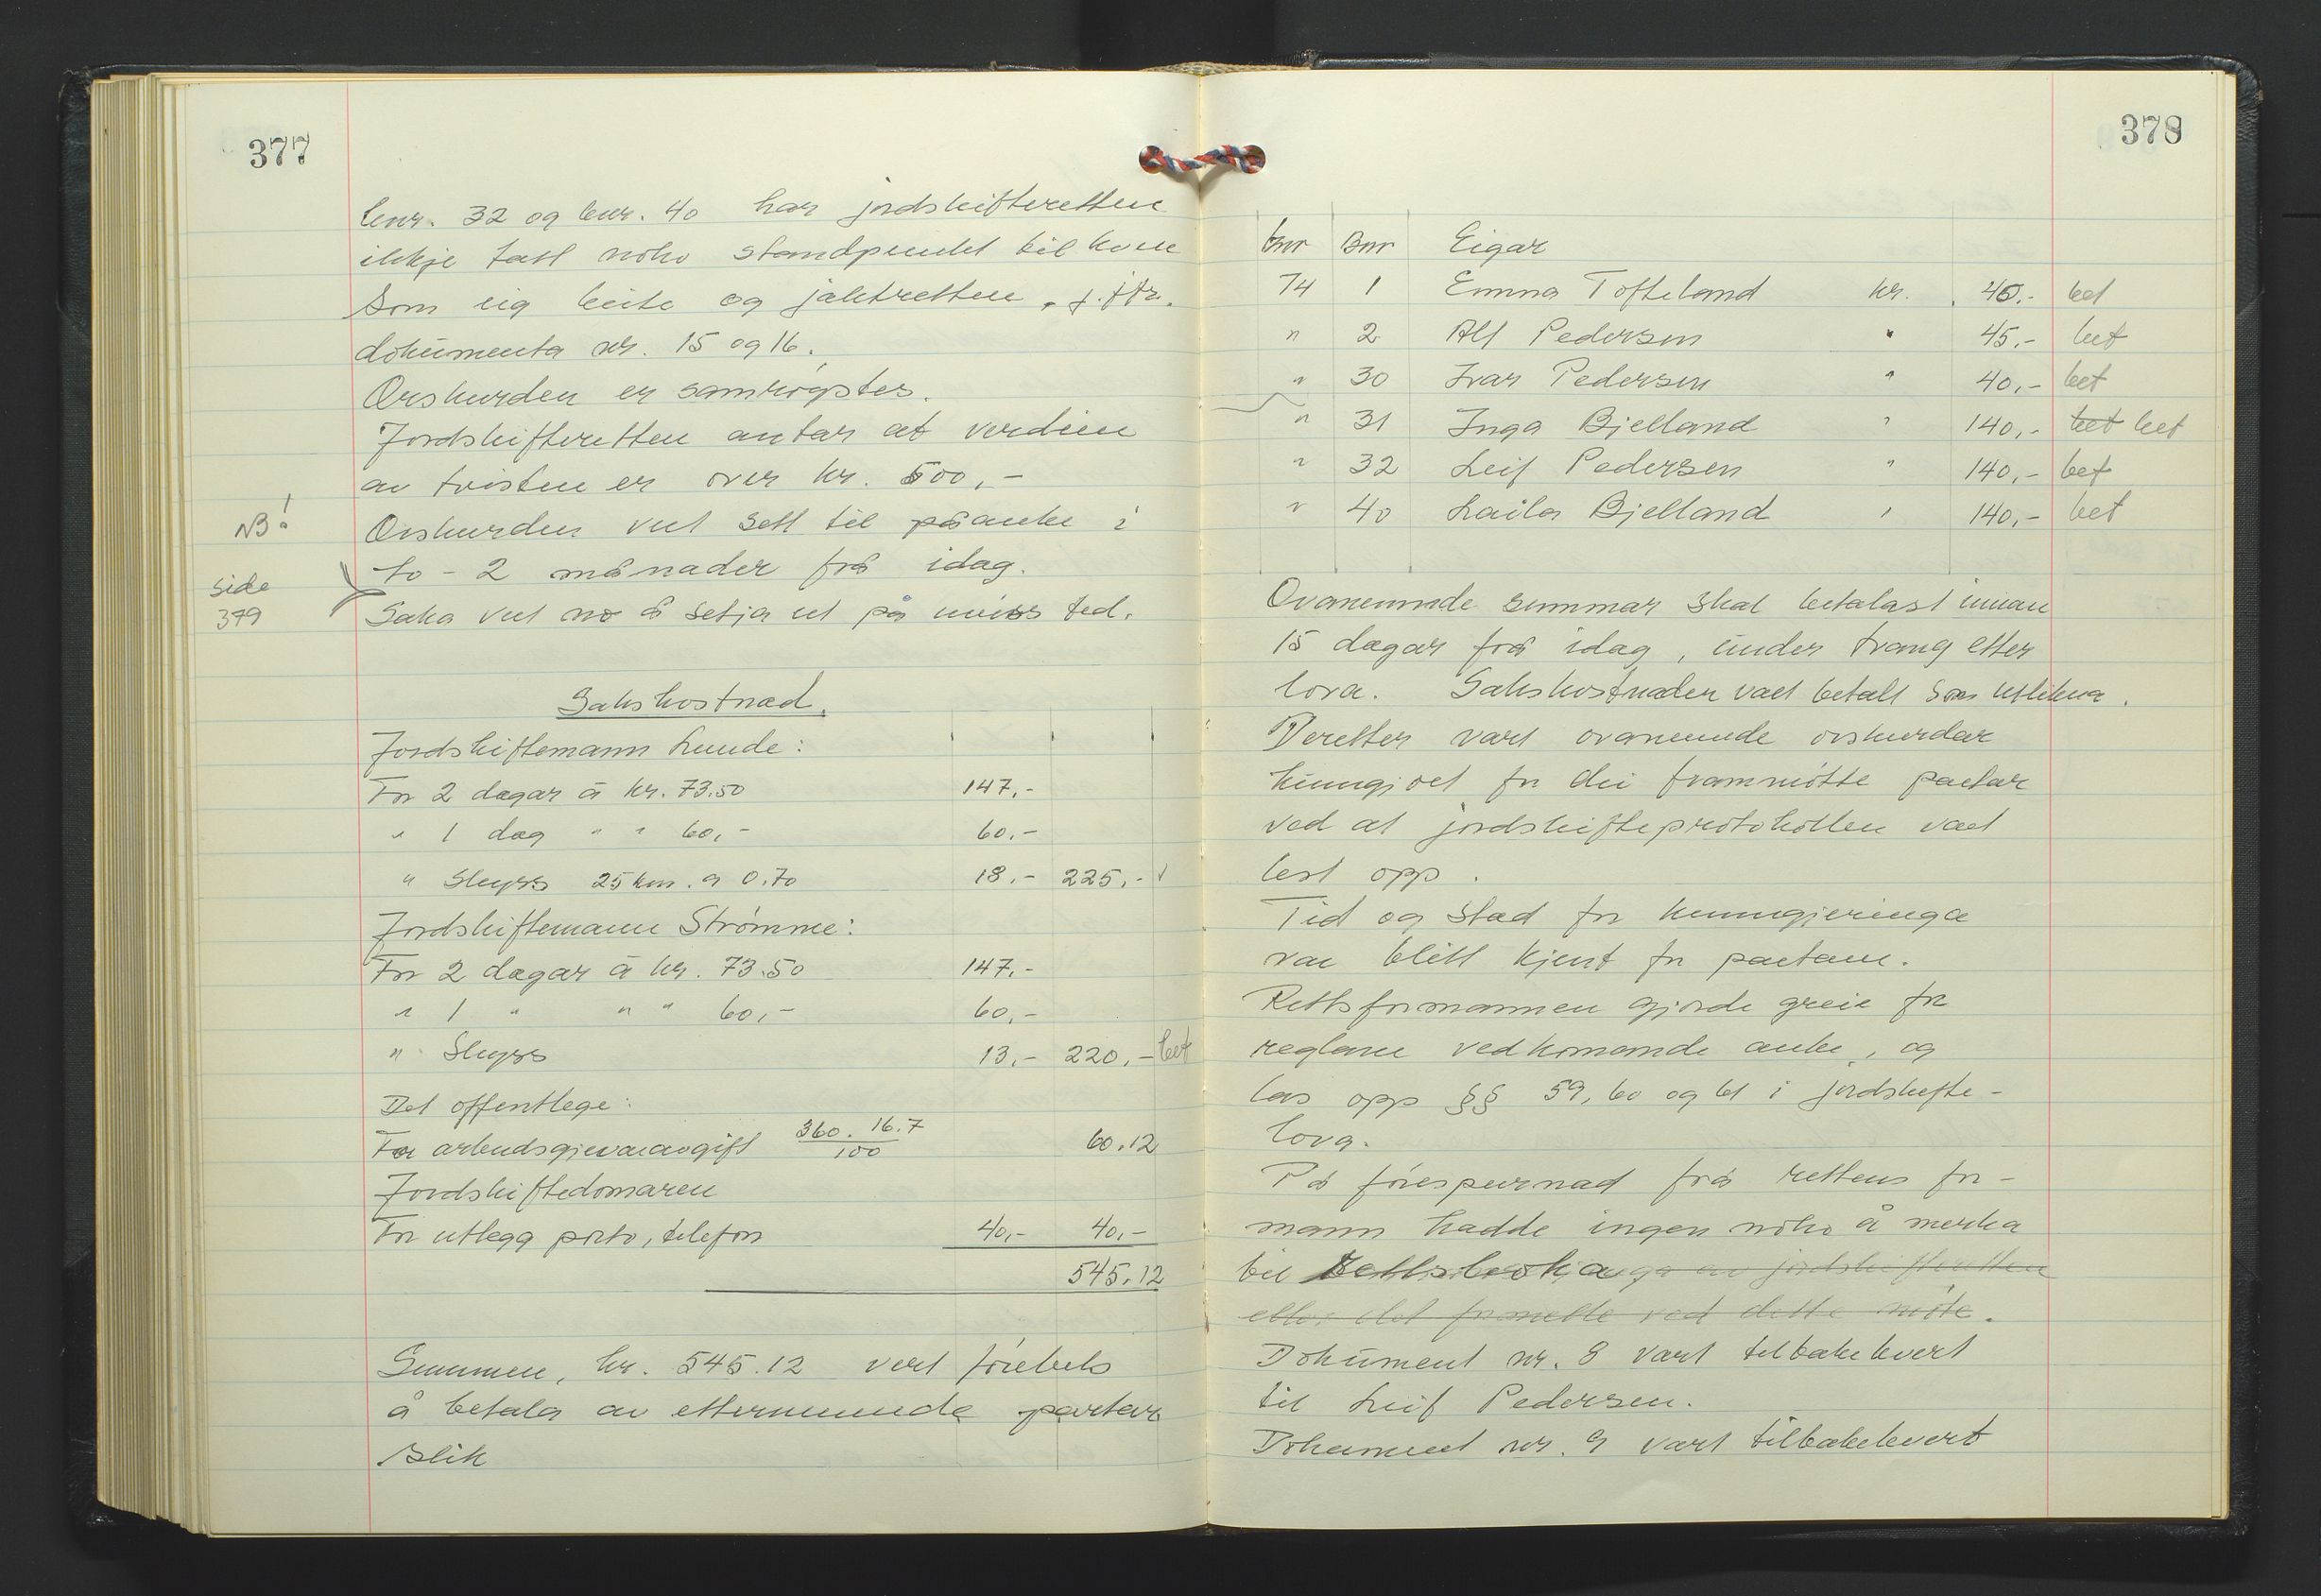 377
bnr. 32 og bnr. 40 har jordskifteretten
ikkje tatt noko standpunkt til kven
som eig beite og jaktretten, j.fr.
dokumenta nr. 15 og 16.
Orskurden er samrøystes.
Jordskifteretten antar at verdien
av tvisten er over kr. 500,-
NB!
Orskurden vert sett til påanke i
to - 2 månader frå idag.
side
379
Saka vert no å setja ut på uviss tid.
Sakskostnad.
Jordskiftemann Lunde:
For 2 dagar á kr. 73.50 147,-
" 1 dag " " 60,- 60,-
" Skyss 25 km. a 0.70 18,- 225,-
Jordskiftemann Strömme:
For 2 dagar á kr. 73.50 147,-
" 1 " " " 60,- 60,-
" Skyss 13,- 220,- bet
Det offentlege:
For arbeidsgjevaravgift 360. 16.7 / 100 60.12
Jordskiftedomaren
For utlegg porto, telefon 40,- 40,-
545.12
Summen, kr. 545.12 vert förebels
å betala av etternemnde partar
slik
378
Gnr Bnr Eigar
74 1 Emma Tofteland kr. 40,- bet
" 2 Alf Pedersen " 45,- bet
" 30 Ivar Pedersen " 40,- bet
" 31 Inga Bjelland " 140,- bet bet
" 32 Leif Pedersen " 140,- bet
" 40 Laila Bjelland " 140,- bet
Ovanemnde summar skal betalast innan
15 dagar frå idag, under tvang etter
lova. Sakskostnaden vart betalt som utlikna.
Deretter vart ovanemnde orskurdar
kunngjort for dei frammötte partar
ved at jordskifteprotokollen vart
lest opp.
Tid og stad for kunngjeringa
var blitt kjent for partane.
Rettsformannen gjorde greie for
reglane vedkomande anke, og
las opp §§ 59, 60 og 61 i jordskifte-
lova.
På förespurnad frå rettens for-
mann hadde ingen noko å merka
til Rettsboka av jordskifteretten
eller det framsette ved dette möte.
Dokument nr. 8 vart tilbakelevert
til Leif Pedersen.
Dokument nr. 9 vart tilbakelevert